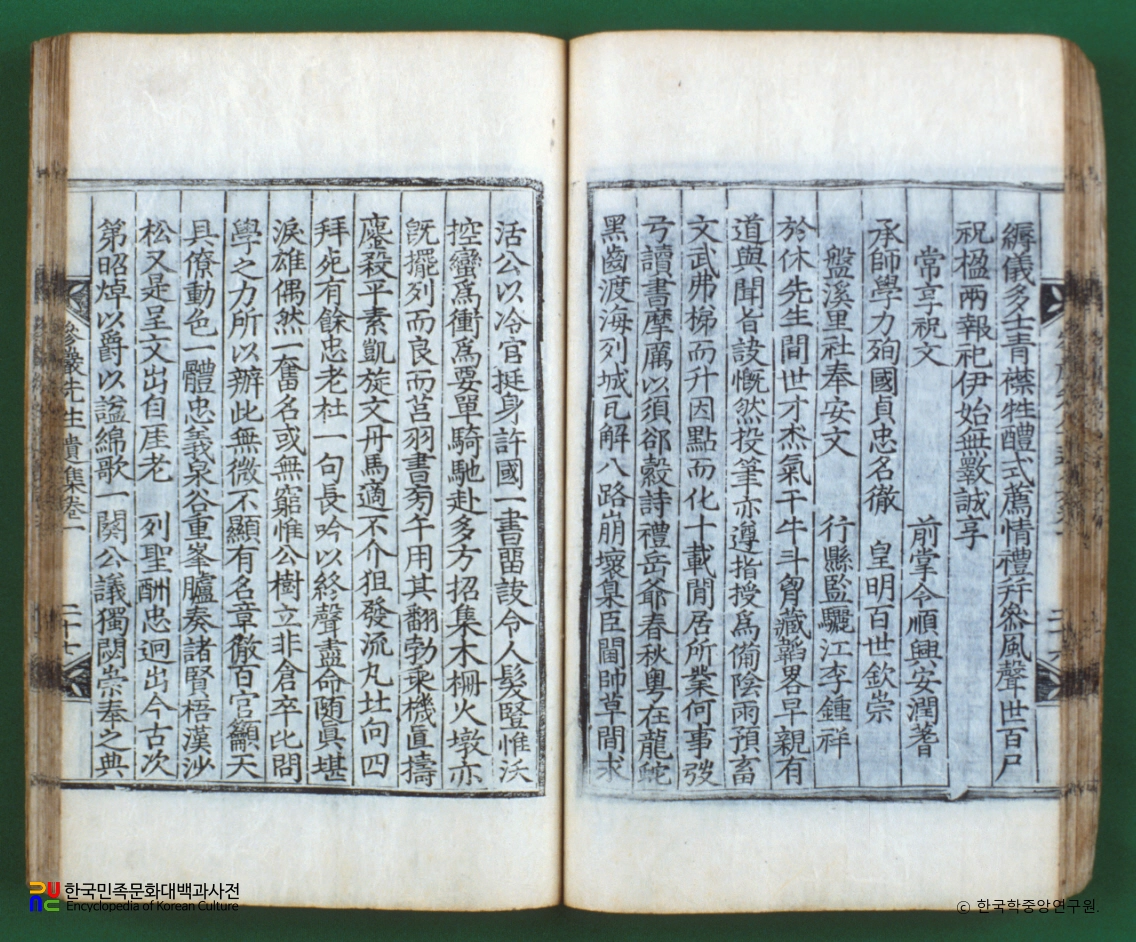 縟儀多士青襟牲醴式薦情禮幷崇風聲世百尸
祝楹兩報祀伊始無斁諴享
常享祝文　前掌令順興安潤蓍
承師學力殉國貞忠名徹　皇明百世欽崇
盤溪里社奉安文　行縣監驪江李鍾祥
於休先生間世才杰氣干牛斗胷藏韜畧早親有
道與聞旨訣慨然投筆亦遵指授爲備陰雨預畜
文武弗梯而升因點而化十載閒居所業何事弢
弓讀書摩厲以須郤縠詩禮岳爺春秋粤在龍蛇
黑齒渡海列城瓦解八路崩壞臬臣閫帥草間求
活公以冷官挺身許國一書留訣令人髮竪惟沃
控蠻爲衝爲要單騎馳赴多方招集木柵火墩亦
旣擺列而良而莒羽書旁午用其翻勃乘機直擣
鏖殺平素凱旋文丹馬適不介狙發流丸北向四
拜死有餘忠老杜一句長吟以終聲盡命隨眞堪
淚雄偶然一奮名或無窮惟公樹立非倉卒比問
學之力所以辦此無微不顯有名章徹百官籲天
具僚動色一體忠義泉谷重峯臚奏諸賢梧漢沙
松又是呈文出自厓老　列聖酬忠迥出今古次
第昭焯以爵以諡綿歌一闋公議獨閟崇奉之典
先生遺集卷一　二十七
한국민족문화대백과사전
Encyclopedia of Korean Culture
© 한국학중앙연구원.